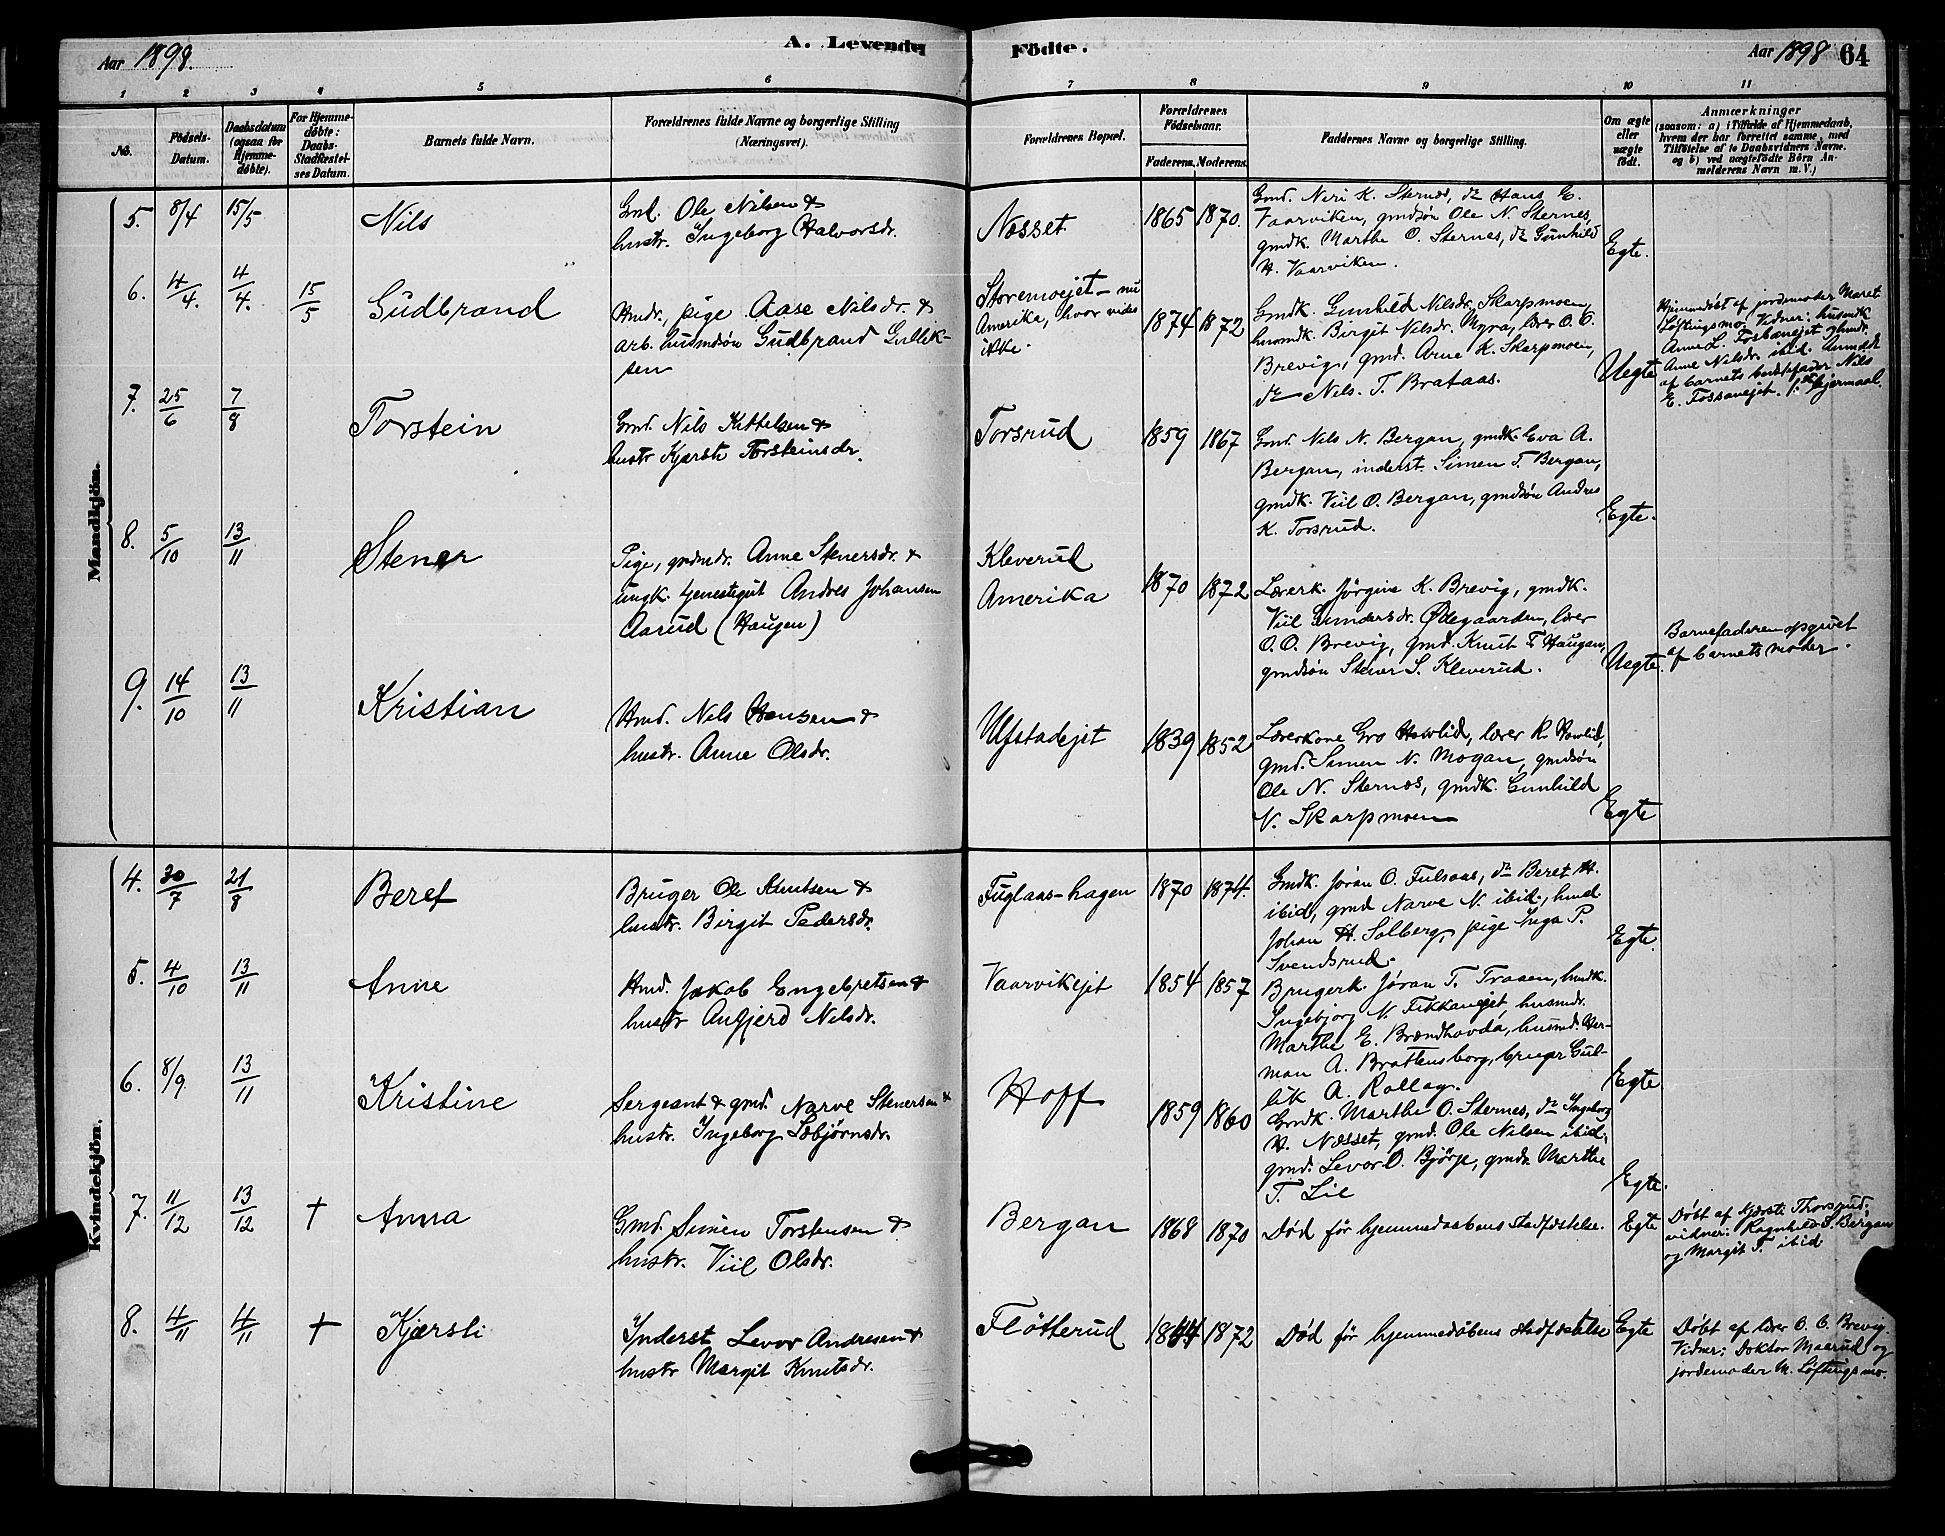 Aar 1898.
A. Levende
Födte.
Aar 1898
64
1 2 3 4 5 6 7 8 9 10 11
No.
Födsels-
Datum.
Daabsdatum
(ogsaa for
Hjemme-
døbte).
For Hjemme-
døbte:
Daabs-
Stadfæstel-
ses Datum.
Barnets fulde Navn.
Forældrenes fulde Navne og borgerlige Stilling
(Næringsvei).
Forældrenes Bopæl.
Forældrenes
Födselsaar.
Faderens. Moderens.
Faddernes Navne og borgerlige Stilling.
Om ægte
eller
uægte
født.
Anmærkninger
(saasom: a) i Tilfælde af Hjemmedaab,
hvem der har forrettet samme, med
Tilföielse af to Daabsvidners Navne.
og b) ved uægtefødte Börn An-
melderens Navn m. V.)
Mandkjön.
5. 8/4 15/5
Nils
Gmd. Ole Nilsen &
hustr. Ingeborg Halvorsdr.
Næsset
1865 1870.
Gmd. Niri K. Sternes, do Hans E.
Vaarviken, gmdsøn Ole N. Sternes,
gmdk. Marthe O. Sternes, do Gunhild
H. Vaarviken.
Egte.
6. 4/4. 4/4. 15/5
Gudbrand
Hmdr., pige Aase Nilsdr. &
arb. husmdsön Gudbrand Gullik-
sen
Storemoejet - nu
Amerika, hvor vides
ikke.
1874 1872
Gmdk. Gunhild Nilsdr. Skarpmoen,
husmdk. Birgit Nilsdr. Myra, lærer O. O.
Brevig, gmd. Arne K. Skarpmoen,
do Nils. T. Brataas.
Uegte
Hjemmedøbt af jordemoder Maret
Löftingsmo. Vidner: husmdk
Anne L. Fossanejet og hmdr.
Anne Nilsdr. ibid. Anmeldt
af barnets bedstefader Nils
E. Fossanejet. 1ste lejermaal.
7. 25/6 7/8
Torstein
Gmd. Nils Kittelsen &
hustr Kjersti Torsteinsdr.
Torsrud
1859 1867
Gmd. Nils N. Bergan, gmdk. Eva A.
Bergan, inderst. Simen T. Bergan,
gmdk. Viil O. Bergan, gmdsön Andres
K. Torsrud.
Egte.
8. 5/10 13/11
Stener
Pige, gmdmdr. Anne Stenersdr. &
ungk. tjenestegut Andres Johansen
Aarud (Haugen)
Kleverud
Amerika
1870 1872
Lærerk. Jörgine K. Brevig, gmdk.
Viil Gundersdr. Ödegaarden, lærer
O. O. Brevig, gmd. Knut T. Haugan,
gmdsön Stener S. Kleverud.
Uegte.
Barnefaderen opgivet
af barnets moder.
9. 14/10 13/11
Kristian
Hmd. Nils Hansen &
hustr. Anne Olsdr.
Ufstadejet
1839 1852
Lærerkone Gro Havlid, lærer K. Havlid,
gmd. Simen N. Mogan, gmdsön
Ole N. Sternæs, gmdk. Gunhild
N. Skarpmoen
Egte
Kvindekjön.
4. 30/7 21/8
Beret
Bruger Ole Knutsen &
hustr. Birgit Pedersdr.
Fuglaas-hagen
1870 1874.
Gmdk. Jøran O. Fulsaas, do Beret H.
ibid, gmd Narve N. ibid., hmd.
Johan H. Solberg, pige Inga P.
Svendsrud.
Egte.
5. 4/10 13/11
Anne
Hmd. Jakob Engebretsen &
hustr Anfjerd Nilsdr.
Vaarvikejet
1854 1857
Brugerk. Jöran T. Traaen, hmdk.
Ingebjorg N. Fikkanejet husmdr.
Marthe E. Brændhovda, husmd. Her-
man A. Brattensborg, bruger Gul-
lik A. Rollag.
Egte
6. 8/9. 13/11
Kristine
Sergeant & gmd. Narve Stenersen &
hustr. Ingeborg Lebjørnsdr.
Hoff
1859 1860
Gmdk. Marthe O. Sternes, do Ingeborg
H. Næsset, gmd. Ole Nilsen ibid.
gmd. Levor O. Bjørge, gmdk. Marthe
T. Lie
Egte.
7. 11/12 13/12 †
Anna
Gmd. Simen Torstensen &
hustr. Viil Olsdr.
Bergan
1868 1870
Död för hjemmedaabens stadfæstelse.
Egte
Döbt af Kjersti Thorsrud;
vidner: Ragnhild S. Bergan
og Margit T. ibid
8. 4/11 4/11 †
Kjærsti
Inderst Levor Andresen &
hustr Margit Knutsdr.
Flötterud
1844 1872
Död för hjemmedøbens stadfæstelse
Egte
Döbt af lærer O. O. Brevig.
Vidner: Doktor Maarud og
jordemoder M. Löftingsmo.